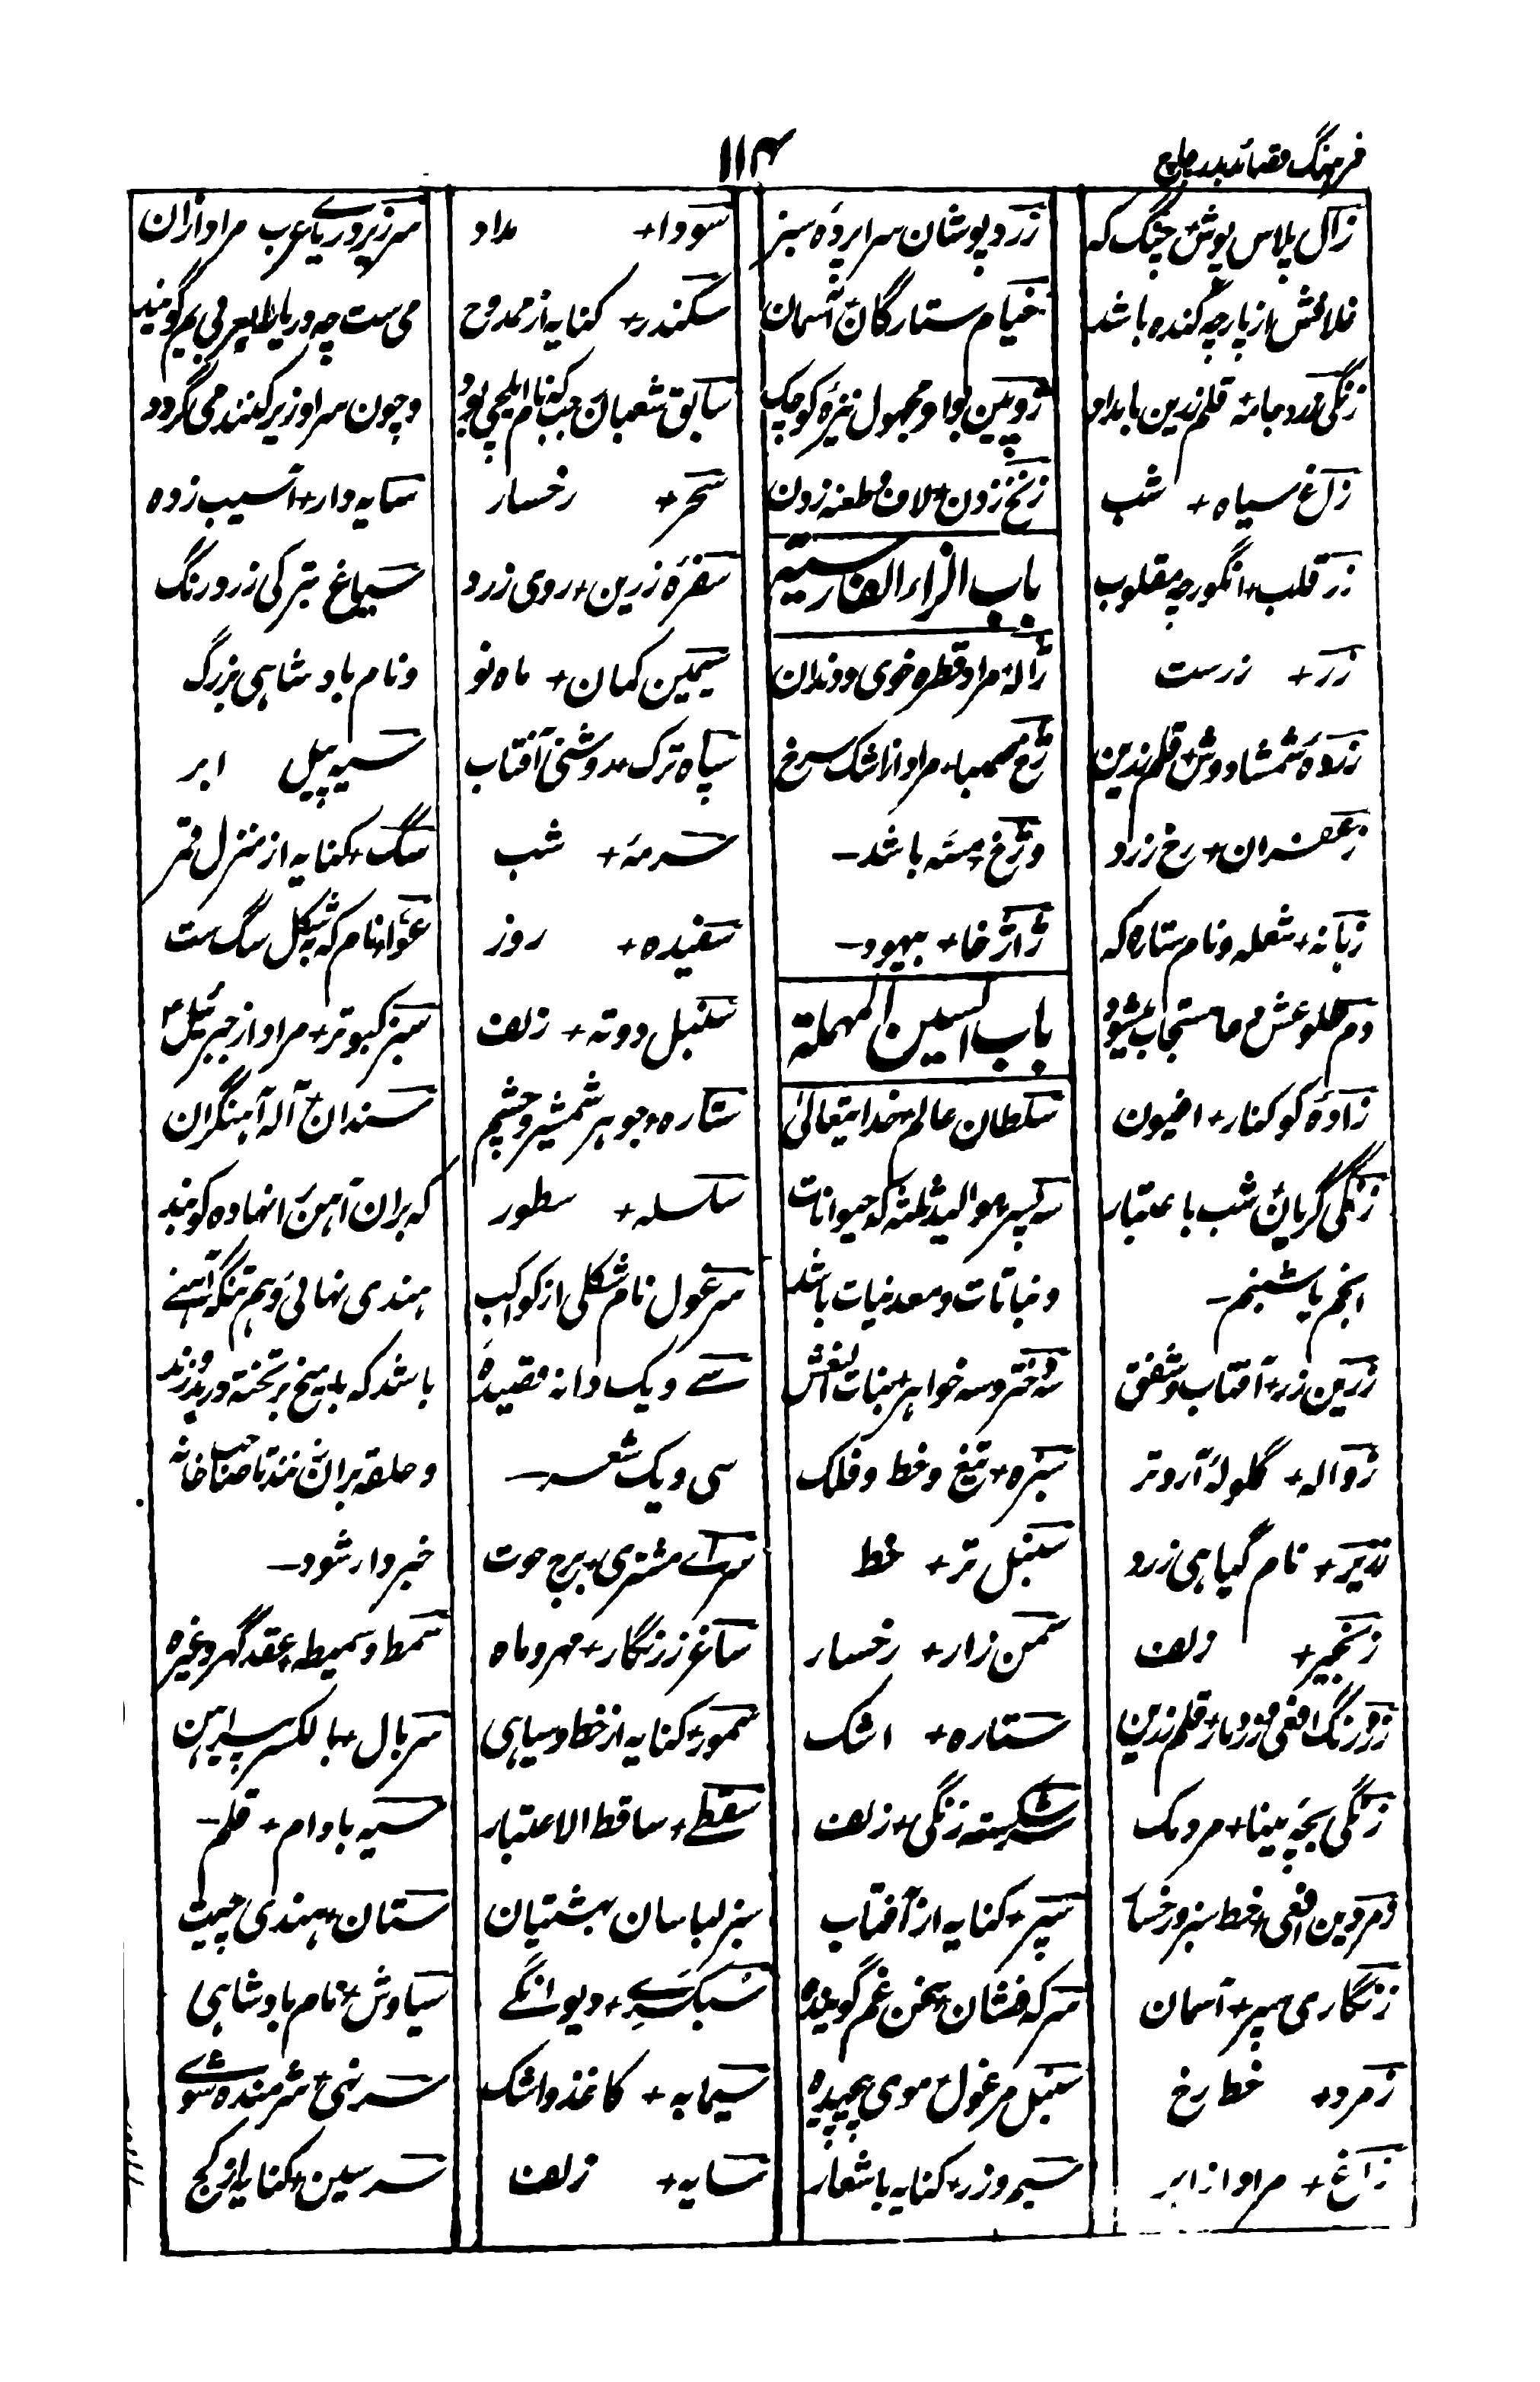 فرہنگ قصائد بدر چاچ
۱۱۴
زال پلاس پوش+ چنگ که
غلافش از پارچه گنده باشد
زنگی زرد جامه+ قلم زرین با مداد
زاغ سیاه+ شب
زر قلب+ انگور چه مقلوب
زر+ زرست
زردهٔ شمشاد وش+ قلم زرین
زعفران+ رخ زرد
زبانه+ شعله و نام ستاره که
دم طلوعش دعا مستجاب میشود
زادهٔ کوکنار+ افیون
زنگی گریان+ شب باعتبار
انجم یا شبنم۔
زرین زرد+ آفتاب و شفق
زواله+ گلولهٔ آرد تر
زریر+ نام گیاهی زرد
زنجیر+ زلف
زرد رنگ افعی مزدور+ قلم زرین
زنگی بچه بینا+ مردمک
زمردین افعی+ خط سبز رخسار
زنگاری سپر+ آسمان
زمرد+ خط رخ
زاغ+ مراد از ابر
زرد پوشان سراپردهٔ سبز
خیام+ ستارگان آسمان
ژوپین+ بواو مجهول نیزهٔ کوچک
زنخ زدن+ لاف و طعنه زدن
باب الزاء الفارسیة
ژاله+ مراد قطره خوی و دندان
ژغ صهبا+ مراد از اشک سرخ
و ژخ+ مسّه باشد۔
ژاژخا+ بیهود۔
باب السین المهملة
سلطان عالم+ خدایتعالیٰ
سه پسر+ موالید ثلثه که حیوانات
و نباتات و معدنیات باشد
سه دختر و سه خواهر+ بنات النعش
سبزه+ تیغ و خط و فلک
سنبل تر+ خط
سمن زار+ رخسار
ستاره+ اشک
سر شکسته زنگی+ زلف
سپر+ کنایه از آفتاب
سرکه فشان+ سخن غم گوینده
سنبل مرغول+ موی پیچیده
سیم و زر+ کنایه باشعار
سودا+ مداد
سکندر+ کنایه از ممدوح
سابق شعبان+ رجب که نام ایلچی بود
سحر+ رخسار
سفرهٔ زرین+ روی زرد
سیمین کمان+ ماه نو
سپاه ترک+ روشنی آفتاب
سرمه+ شب
سفیده+ روز
سنبل دوته+ زلف
ستاره+ جوهر شمشیر و چشم
سلسله+ سطور
سر غول+ نام شکلی از کواکب
سے و یک دانه+ قصیدهٔ
سی و یک شعر۔
سراے مشتری+ برج حوت
ساغر زرنگار+ مهر و ماه
سمور+ کنایه از خط و سیاهی
سقطے+ ساقط الاعتبار
سبز لباسان+ بهشتیان
سبکسرے+ دیوانگے
سیمابه+ کاغذ و اشک
سایه+ زلف
سر زیر دریاے عرب+ مراد ازان
می ست چه دریا بلفظ عربی یم گویند
و چون سر او زیر کنند می گردد
سایه دار+ آسیب زده
سیماغ+ بترکی زرد رنگ
و نام بادشاهی بزرگ
سیه پیل ابر
سگ+ کنایه از منزل قمر
عوّا نام که بشکل سگ ست
سبز کبوتر+ مراد از جبرئیل؏
سندان+ آله آهنگران
که بران آهن را نهاده کوبند
هندی نهائی و هم تنگه آهنے
باشد که با میخ بر تخته در بدوزند
و حلقه بران زنند تا صاحبخانه
خبردار شود۔
سمط و سمیطه+ عقد گهر و غیره
سربال+ بالکسر پیراهن
سیه بادام+ قلم۔
ستان+ هندی چت
سیاوش+ نام بادشاهی
سرنهی+ شرمنده شوے
سر سین+ کنایه از کج